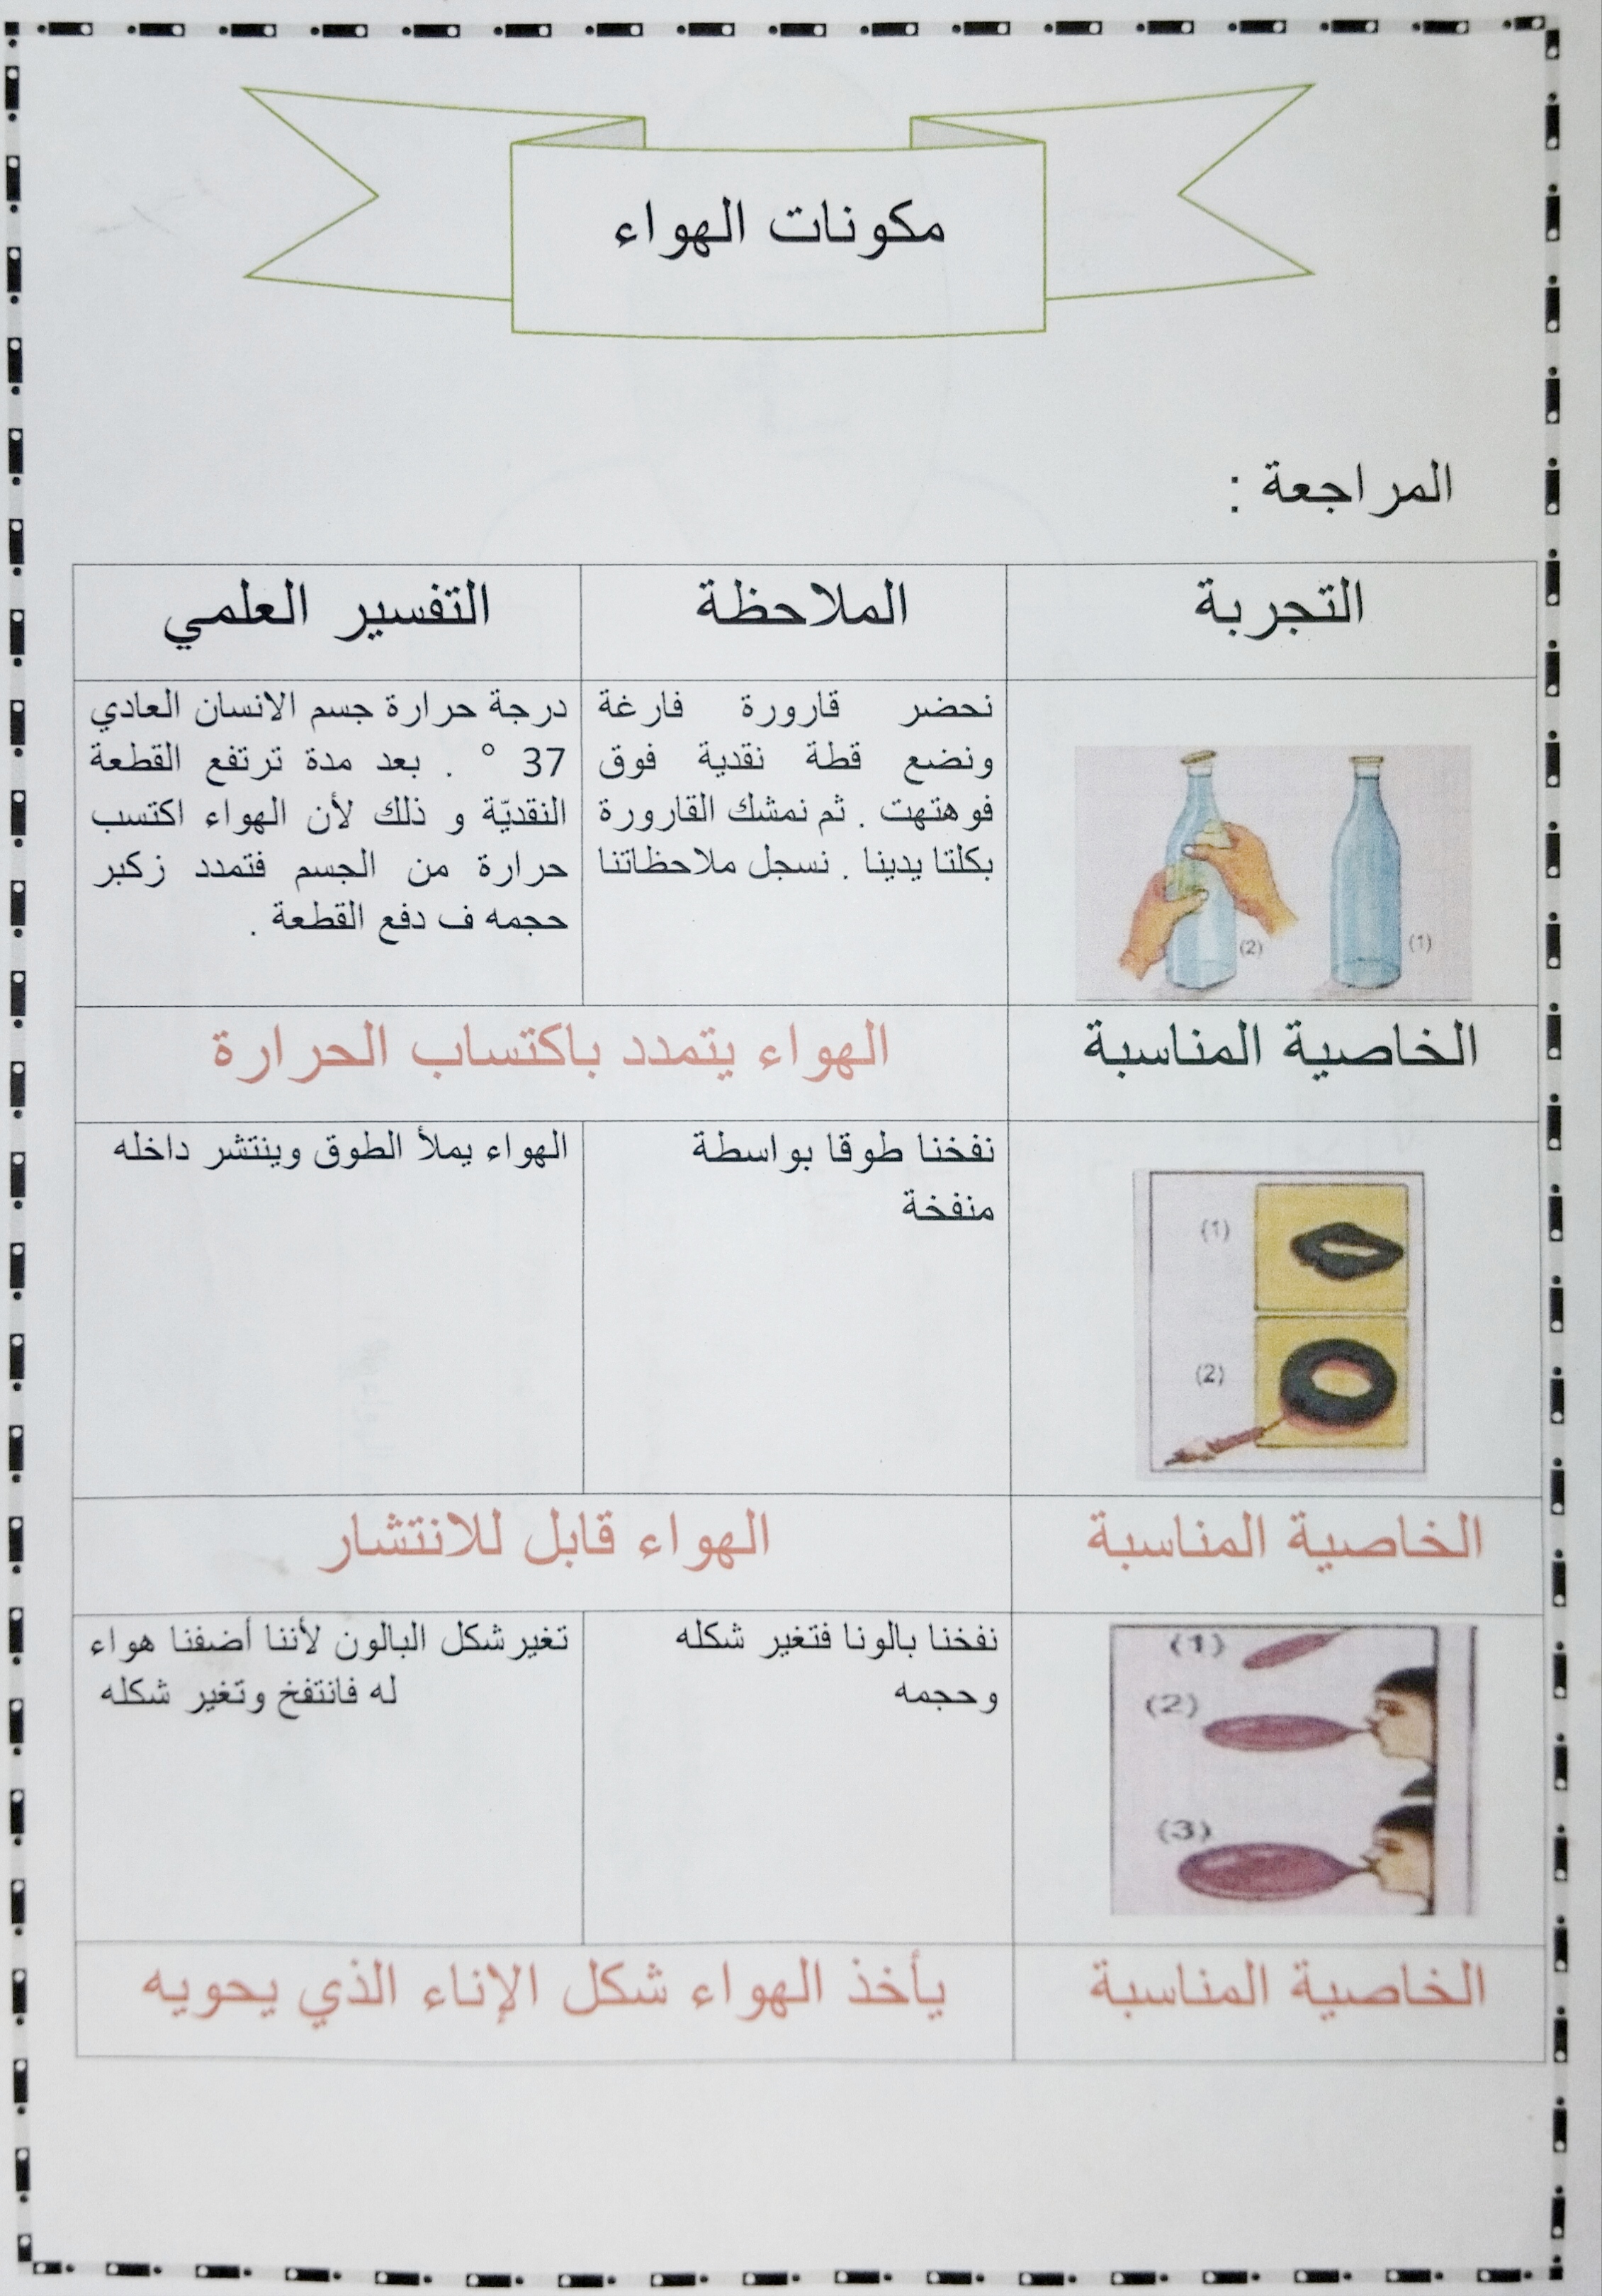 مكونات الهواء
المراجعة :
التجربة
الملاحظة
التفسير العلمي
(1)
(2)
نحضر قارورة فارغة
ونضع قطة نقدية فوق
فوهتهت . ثم نمشك القارورة
بكلتا يدينا . نسجل ملاحظاتنا
درجة حرارة جسم الانسان العادي
37 ° . بعد مدة ترتفع القطعة
النقديّة و ذلك لأن الهواء اكتسب
حرارة من الجسم فتمدد زكبر
حجمه ف دفع القطعة .
الخاصية المناسبة
الهواء يتمدد باكتساب الحرارة
(1)
(2)
نفخنا طوقا بواسطة
منفخة
الهواء يملأ الطوق وينتشر داخله
الخاصية المناسبة
الهواء قابل للانتشار
(1)
(2)
(3)
نفخنا بالونا فتغير شكله
وحجمه
تغيرشكل البالون لأننا أضفنا هواء
له فانتفخ وتغير شكله
الخاصية المناسبة
يأخذ الهواء شكل الإناء الذي يحويه